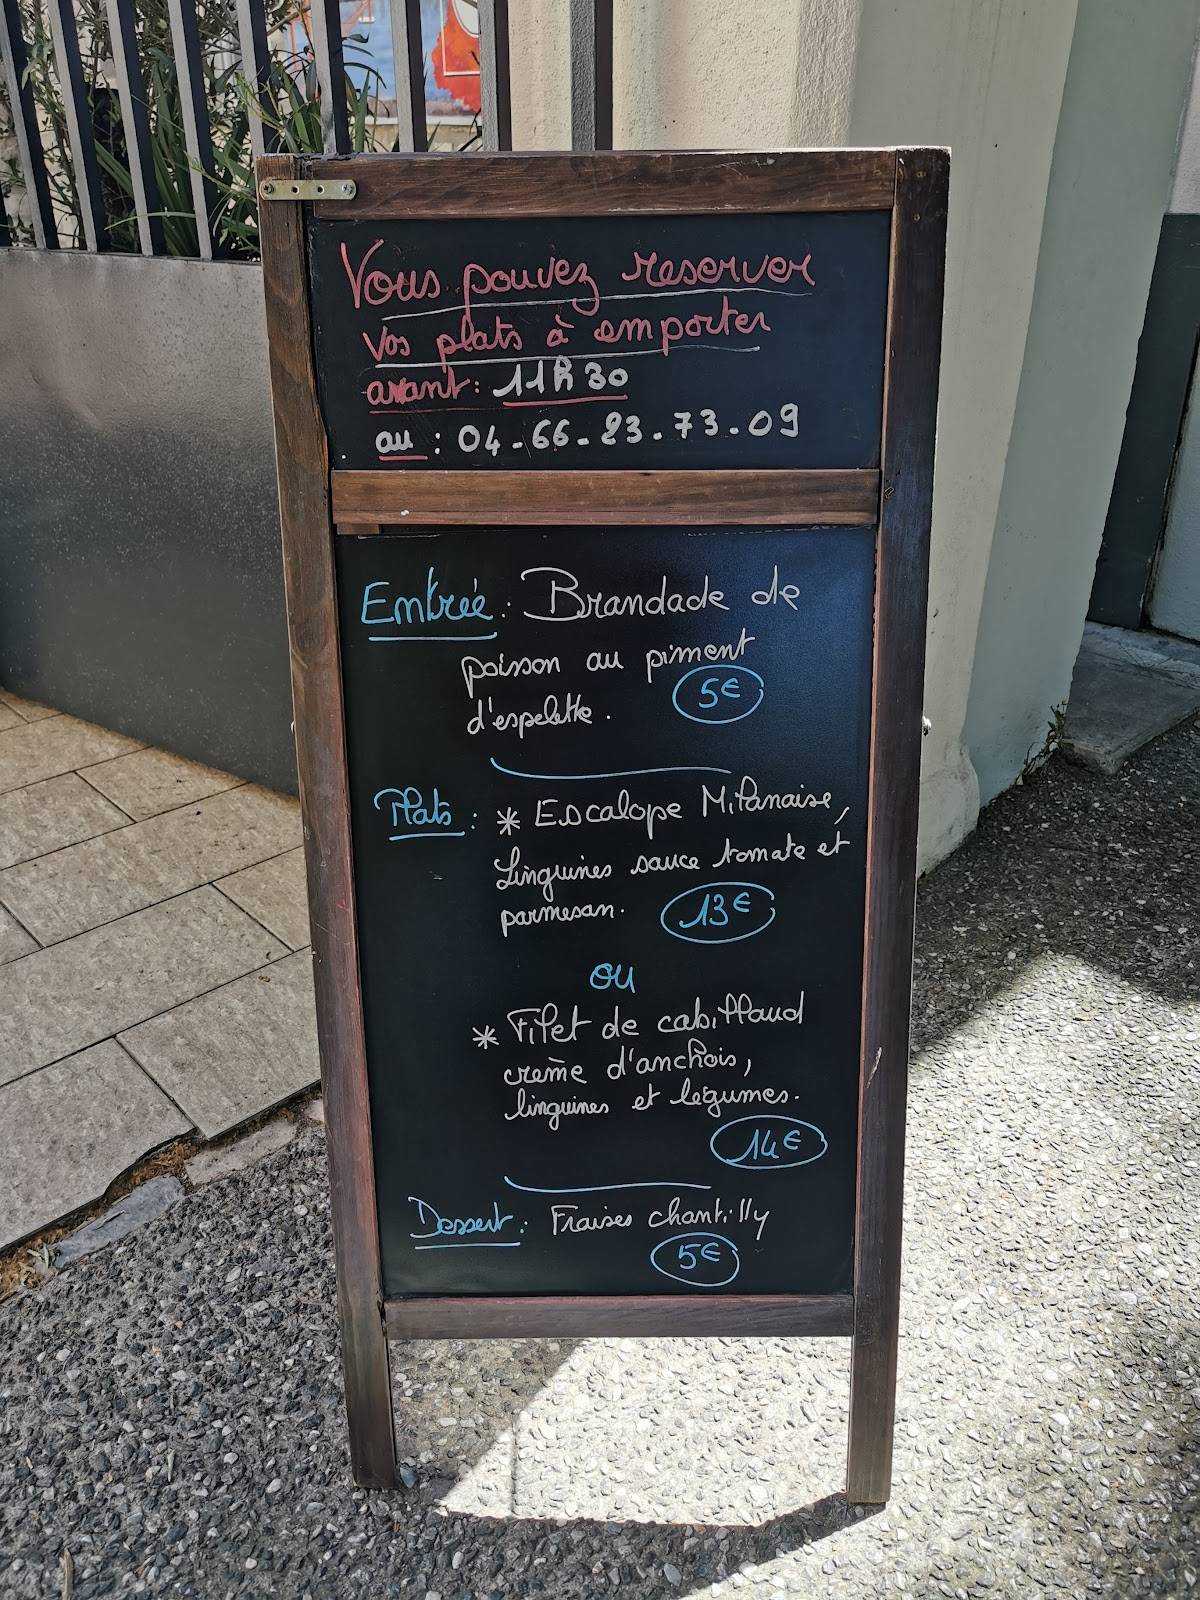 Vous pouvez reserver
vos plats à emporter
avant : 11h30
au : 04-66-23-73-09
Entrée : Brandade de
poisson au piment
d'espelette. 5€
Plats : * Escalope Milanaise,
Linguines sauce tomate et
parmesan. 13€
ou
* Filet de cabillaud
crème d'anchois,
linguines et légumes.
14€
Dessert : Fraises chantilly
5€